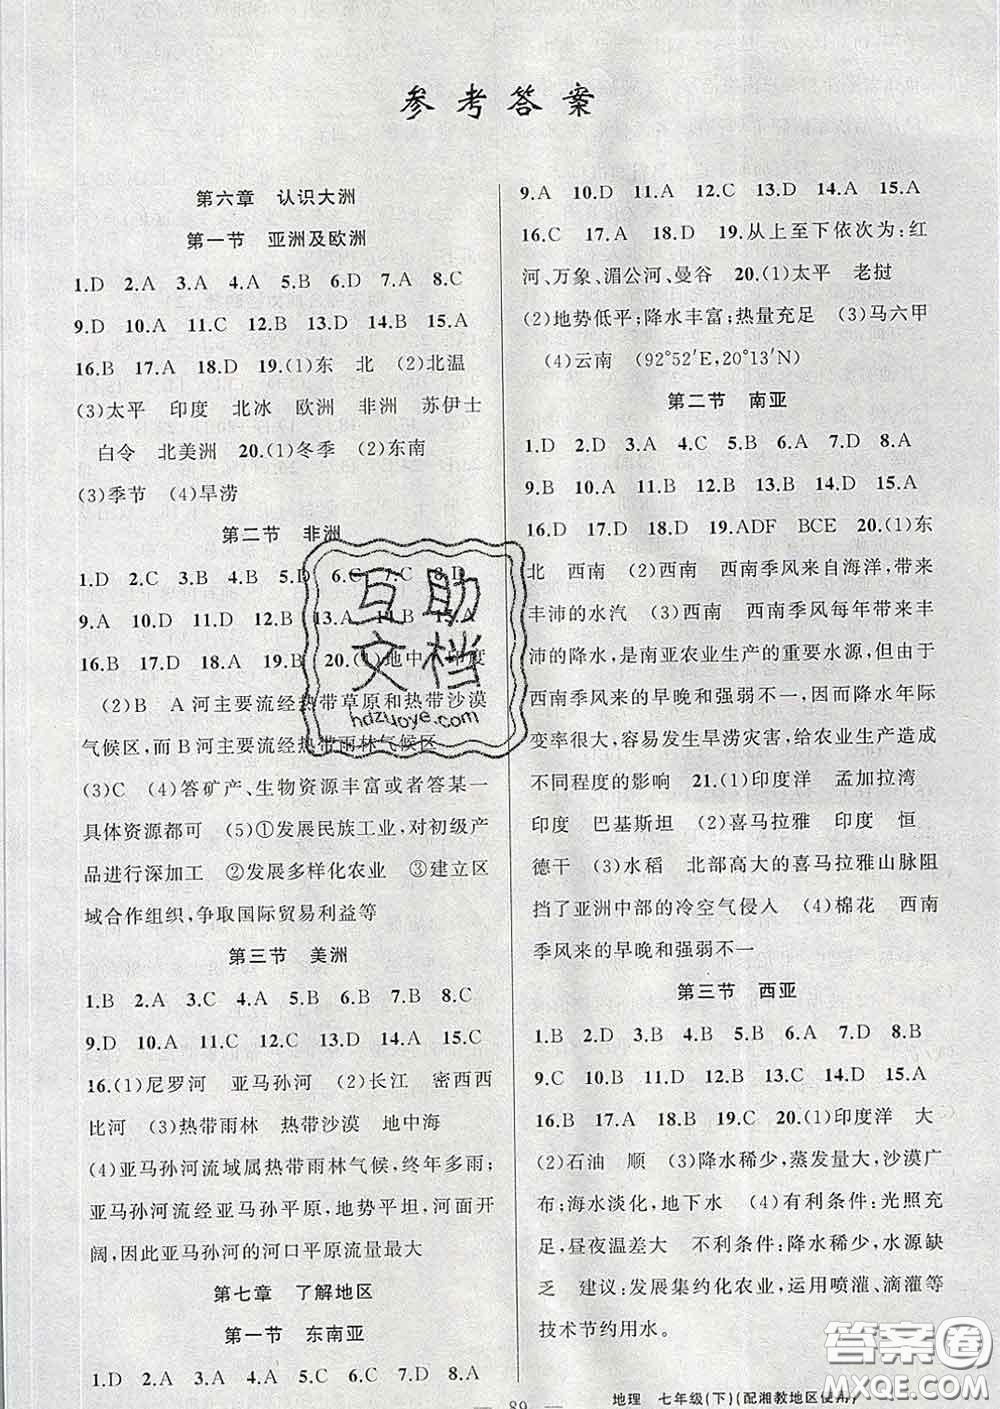 参考答案
第六章 认识大洲
第一节 亚洲及欧洲
1.D 2.A 3.A 4.A 5.B 6.D 7.A 8.C
9.D 10.A 11.C 12.B 13.D 14.B 15.A
16.B 17.A 18.D 19.(1)东 北 (2)北温
(3)太平 印度 北冰 欧洲 非洲 苏伊士
白令 北美洲 20.(1)冬季 (2)东南
(3)季节 (4)旱涝
第二节 非洲
1.D 2.C 3.B 4.B 5.D 6.C 7.C 8.D
9.A 10.A 11.D 12.A
16.B 17.D 18.C 19.B 20.(1)地中 印度
(2)B A河主要流经热带草原和热带沙漠
气候区,而B河主要流经热带雨林气候区
(3)C (4)答矿产、生物资源丰富或者答某一
具体资源都可 (5)①发展民族工业,对初级产
品进行深加工 ②发展多样化农业 ③建立区
域合作组织,争取国际贸易利益等
第三节 美洲
1.B 2.A 3.C 4.A 5.B 6.B 7.B 8.C
9.D 10.A 11.C 12.C 13.D 14.A 15.C
16.(1)尼罗河 亚马孙河 (2)长江 密西西
比河 (3)热带雨林 热带沙漠 地中海
(4)亚马孙河流域属热带雨林气候,终年多雨;
亚马孙河流经亚马孙平原,地势平坦,河面开
阔,因此亚马孙河的河口平原流量最大
第七章 了解地区
第一节 东南亚
1.D 2.D 3.B 4.A 5.C 6.B 7.D 8.A
9.A 10.D 11.A 12.C 13.D 14.A 15.A
16.C 17.A 18.D 19.从上至下依次为:红
河、万象、湄公河、曼谷 20.(1)太平 老挝
(2)地势低平;降水丰富;热量充足 (3)马六甲
(4)云南 (92°52′E,20°13′N)
第二节 南亚
1.D 2.D 3.A 4.C 5.B 6.A 7.D 8.A
9.B 10.A 11.A 12.B 13.D 14.D 15.A
16.D 17.D 18.D 19.ADF BCE 20.(1)东
北 西南 (2)西南 西南季风来自海洋,带来
丰沛的水汽 (3)西南 西南季风每年带来丰
沛的降水,是南亚农业生产的重要水源,但由于
西南季风来的早晚和强弱不一,因而降水年际
变率很大,容易发生旱涝灾害,给农业生产造成
不同程度的影响 21.(1)印度洋 孟加拉湾
印度 巴基斯坦 (2)喜马拉雅 印度 恒
德干 (3)水稻 北部高大的喜马拉雅山脉阻
挡了亚洲中部的冷空气侵入 (4)棉花 西南
季风来的早晚和强弱不一
第三节 西亚
1.B 2.D 3.B 4.B 5.B 6.A 7.D 8.B
9.C 10.B 11.B 12.D 13.D 14.D 15.A
16.B 17.A 18.B 19.C 20.(1)印度洋 大
(2)石油 顺 (3)降水稀少,蒸发量大,沙漠广
布;海水淡化,地下水 (4)有利条件:光照充
足,昼夜温差大 不利条件:降水稀少,水源缺
乏 建议:发展集约化农业,运用喷灌、滴灌等
技术节约用水。
互助
文档
hdzuoye.com
答案圈
MXQE.COM
— 89 —
地理 七年级(下)(配湘教地区使用)